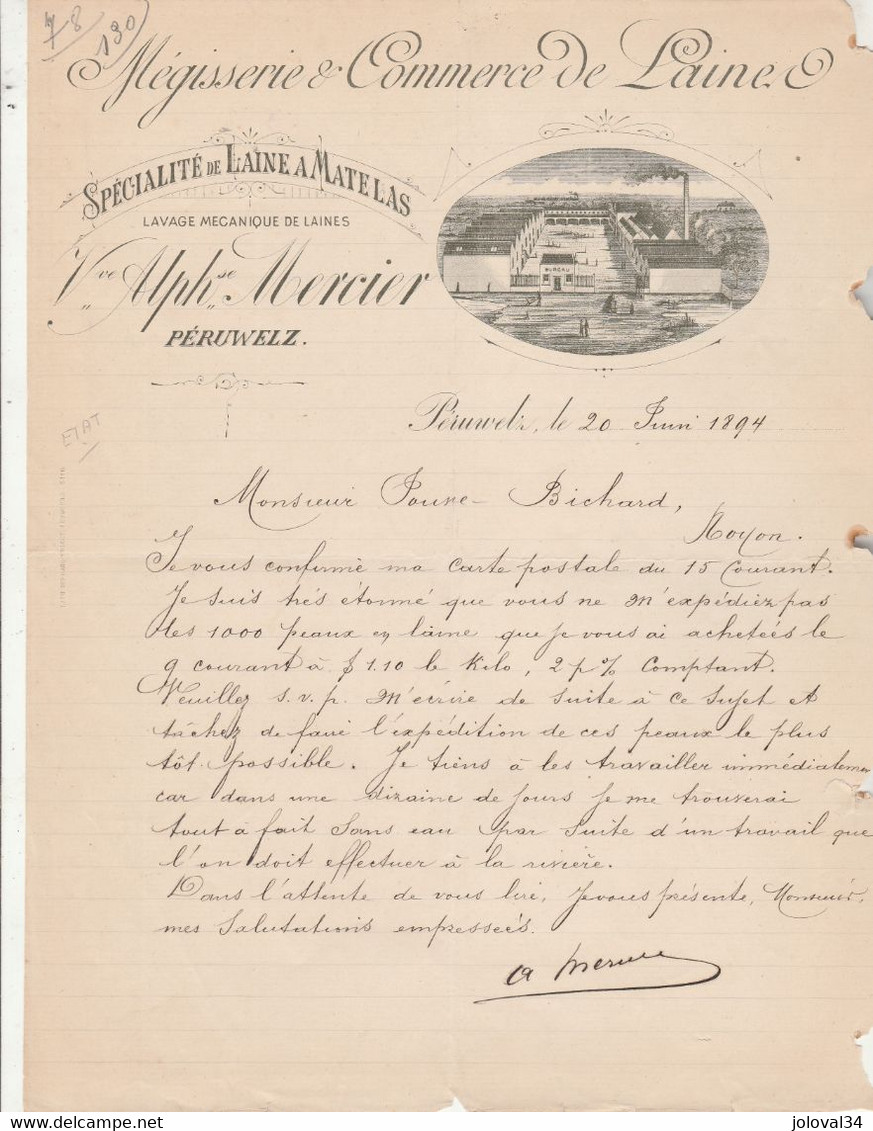 78
130
Mégisserie & Commerce de Laine
SPÉCIALITÉ DE LAINE A MATELAS
LAVAGE MECANIQUE DE LAINES
Vve Alphse Mercier
PÉRUWELZ.
BUREAU
ETAT
Péruwelz, le 20 Juin 1894
Monsieur Bichard,
Noyon.
Je vous confirme ma carte postale du 15 Courant.
Je suis très étonné que vous ne m'expédiez pas
les 1000 peaux en laine que je vous ai achetées le
9 courant à 1.10 le Kilo, 2 p% Comptant.
Veuillez s.v.p. m'écrire de suite à ce sujet et
tâchez de faire l'expédition de ces peaux le plus
tôt possible. Je tiens à les travailler immédiatemen
car dans une dizaine de jours je me trouverai
tout à fait sans eau par suite d'un travail que
l'on doit effectuer à la rivière.
Dans l'attente de vous lire, Je vous présente, Monsieur,
mes Salutations empressées.
A Mercier
delcampe.net
joloval34